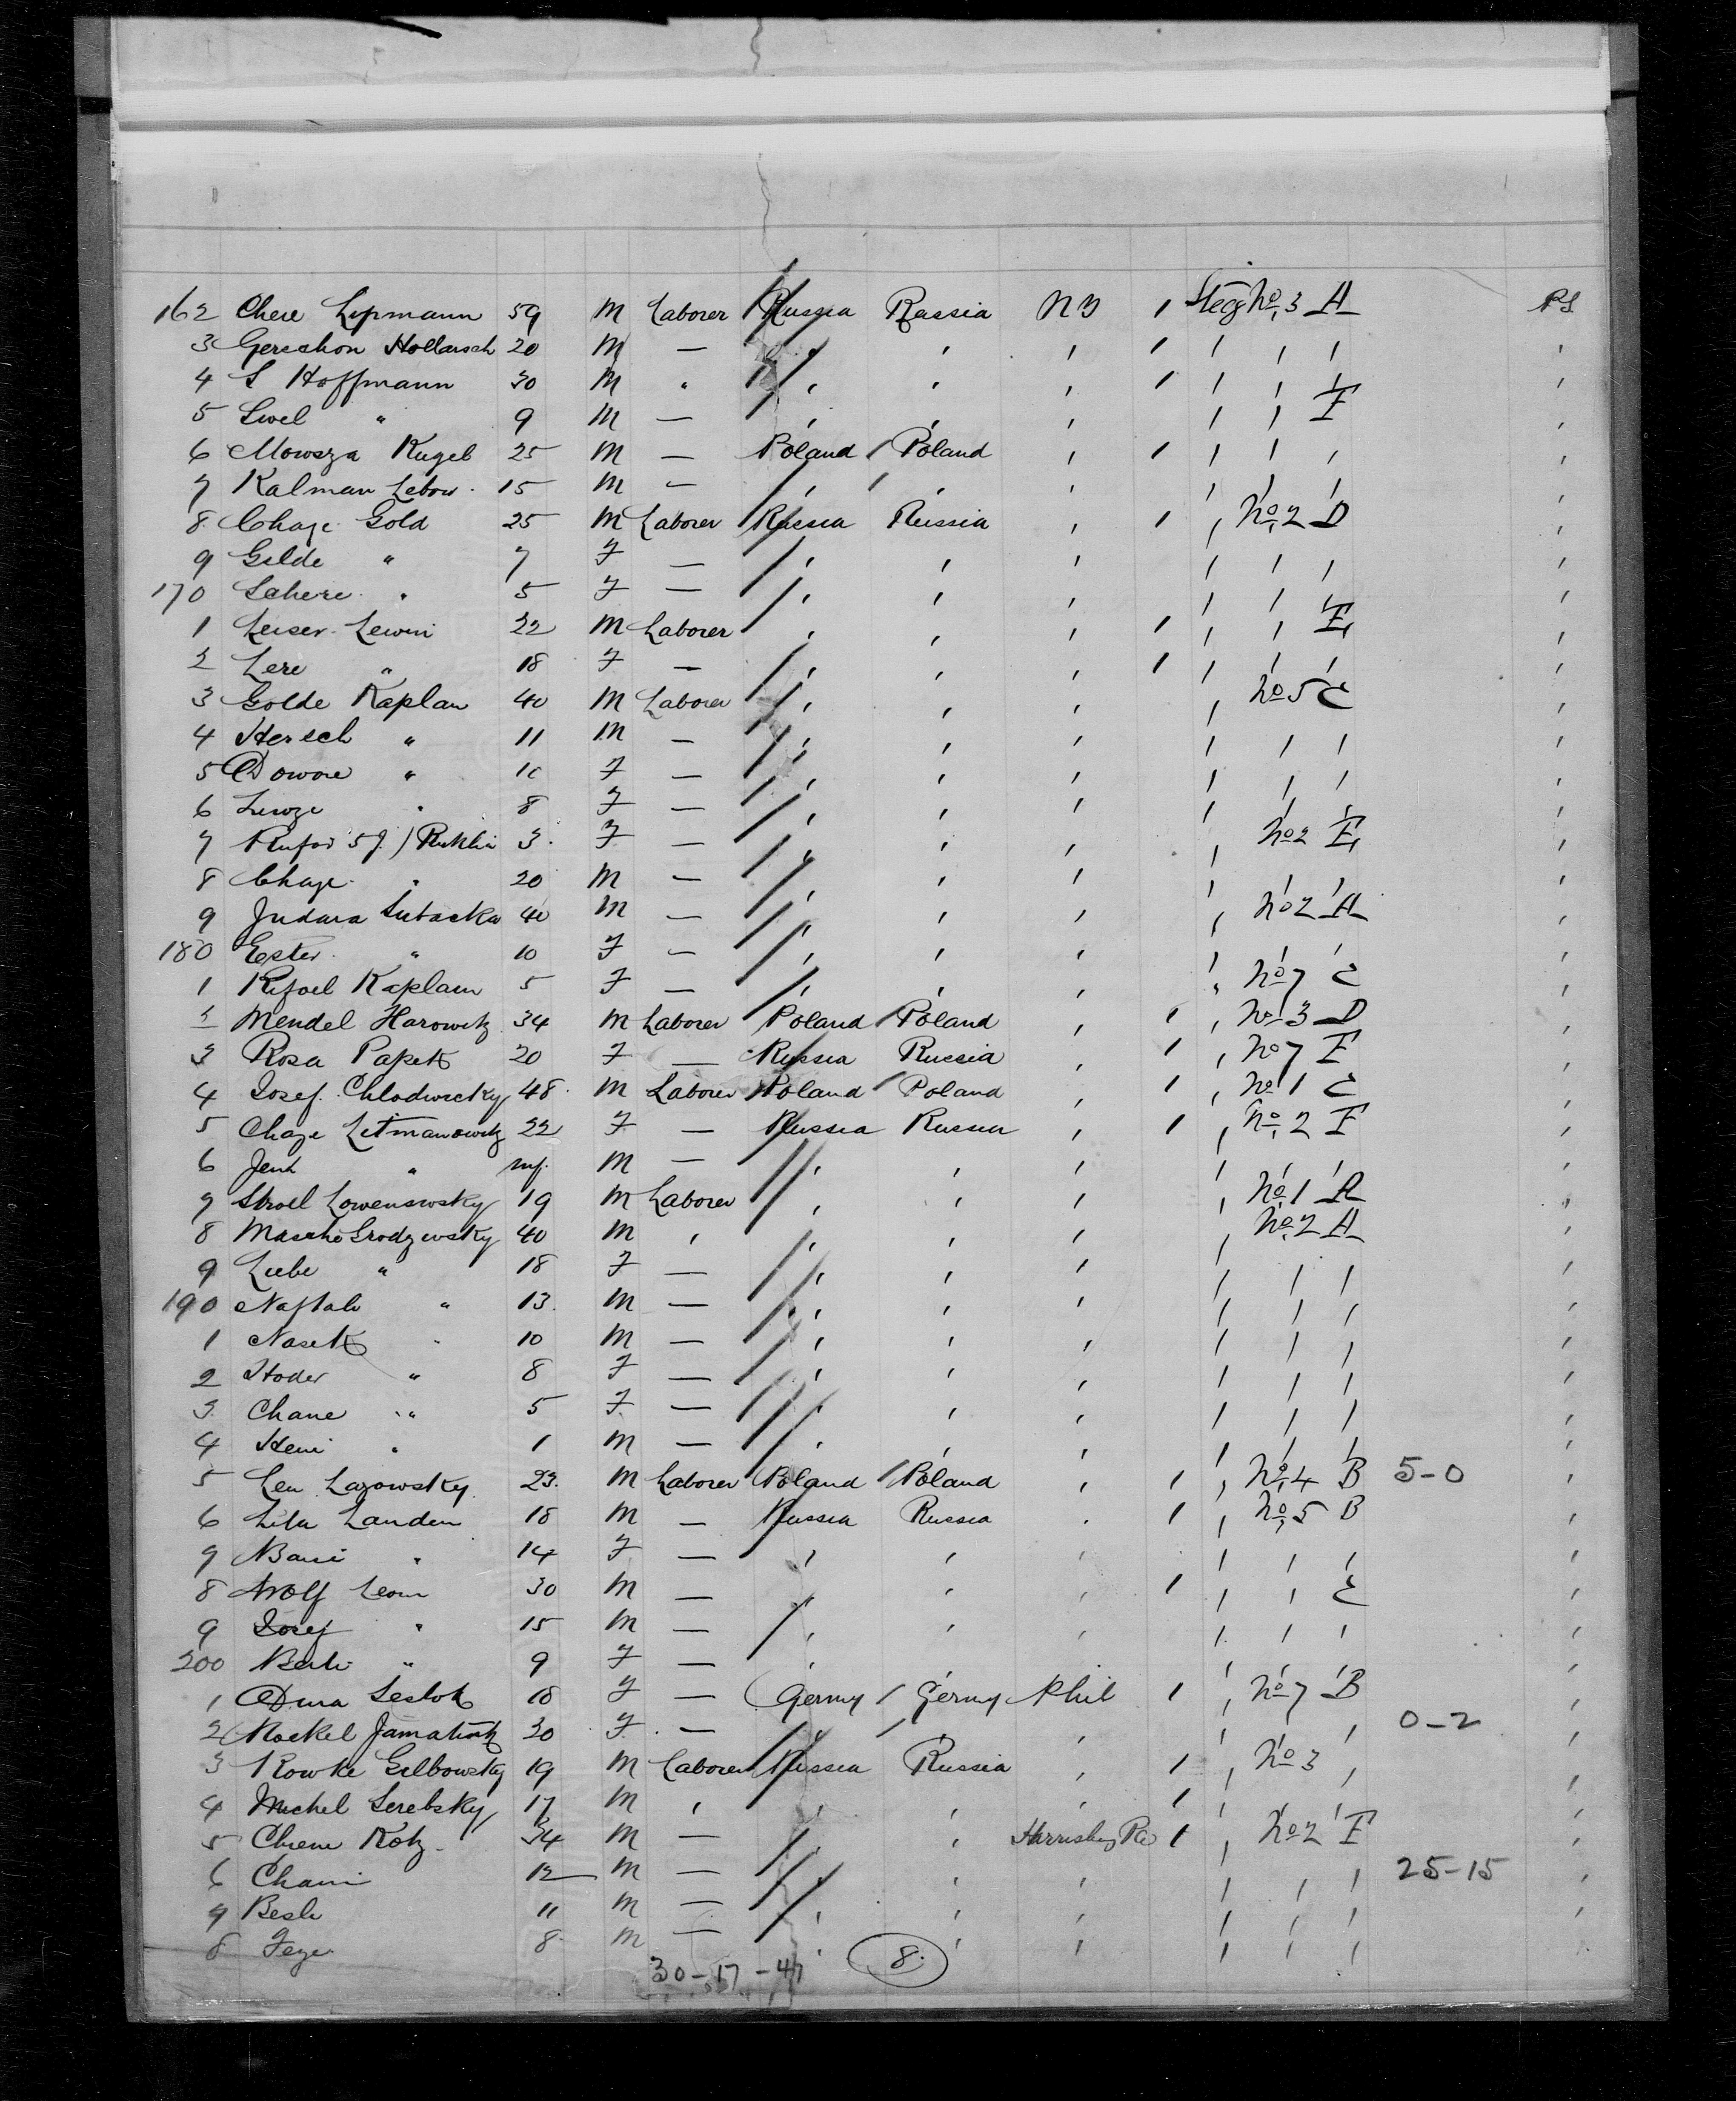 162 Chere Lipmann 59 M Laborer Russia Russia NY / Steeg No. 3 A PS
3 Gerschon Hollarsch 20 M — ' ' ' / ' ' ' '
4 S Hoffmann 30 M " ' ' ' / ' ' ' '
5 Swel " 9 M — ' ' ' ' ' F '
6 Mowsza Kugel 25 M — Poland / Poland ' / ' ' ' '
7 Kalman Lebow 15 M — ' / ' ' ' ' ' '
8 Chaje Gold 25 M Laborer Russia Russia ' / ' No. 2 D '
9 Gilde " 7 F — ' ' ' ' ' ' '
170 Schere " 5 F — ' ' ' ' ' ' '
1 Leiser Lewin 22 M Laborer ' ' ' / ' ' E '
2 Lere " 18 F — ' ' ' / ' ' ' '
3 Golde Kaplan 40 M Laborer ' ' ' ' No 5 C '
4 Hersch " 11 M — ' ' ' ' ' ' '
5 Dowore " 10 F — ' ' ' ' ' ' '
6 " 8 F — ' ' ' ' ' ' '
7 3 F — ' ' ' ' No 2 E '
8 Chaje " 20 M — ' ' ' ' ' ' '
9 40 M — ' ' ' ' No 2 A '
180 Ester " 10 F — ' ' ' ' ' ' '
1 Rifoel Kaplan 5 F — ' ' ' " No 7 C '
2 Mendel Harowitz 34 M Laborer Poland / Poland ' / ' No 3 D '
3 Rosa Papek 20 F — Russia Russia ' / ' No 7 F '
4 Josef Chlodwicky 48 M Laborer Poland / Poland ' / ' No 1 C '
5 Chaje Litmanowitz 22 F — Russia Russia ' / ' No. 2 F '
6 " inf. M — ' ' ' ' ' ' '
7 Lowenswsky 19 M Laborer ' ' ' ' No. 1 A '
8 Masche Grodzewsky 40 M ' ' ' ' ' No. 2 A '
9 Liebe " 18 F — ' ' ' ' ' ' '
190 Naftale " 13 M — ' ' ' ' ' ' '
1 Nasek " 10 M — ' ' ' ' ' ' '
2 Hoder " 8 F — ' ' ' ' ' ' '
3 Chane " 5 F — ' ' ' ' ' ' '
4 " 1 M — ' ' ' ' ' ' '
5 Lew Lazowsky 23 M Laborer Poland / Poland ' / ' No. 4 B 5-0 '
6 Landen 18 M — Russia Russia ' / ' No. 5 B '
7 " 14 F — ' ' ' ' ' ' '
8 Wolf 30 M — ' ' ' / ' ' C '
9 Josef " 15 M — ' ' ' ' ' ' '
200 " 9 F — ' ' ' ' ' ' '
1 18 F — Germy / Germy Phil / ' No 7 B '
2 20 F — ' ' ' ' ' ' 0-2 '
3 Rowke Gelbowsky 19 M Laborer Russia Russia ' / ' No 3 ' '
4 Michel Serebsky 17 M ' ' ' ' / ' ' ' '
5 Chiene Kotz 34 M — ' ' Harrisburg Pa / ' No 2 F '
6 12 M — ' ' ' ' ' ' 25-15 '
7 11 M — ' ' ' ' ' ' '
8 Feye 8 M — ' ' ' ' ' '
30-17-47 8.